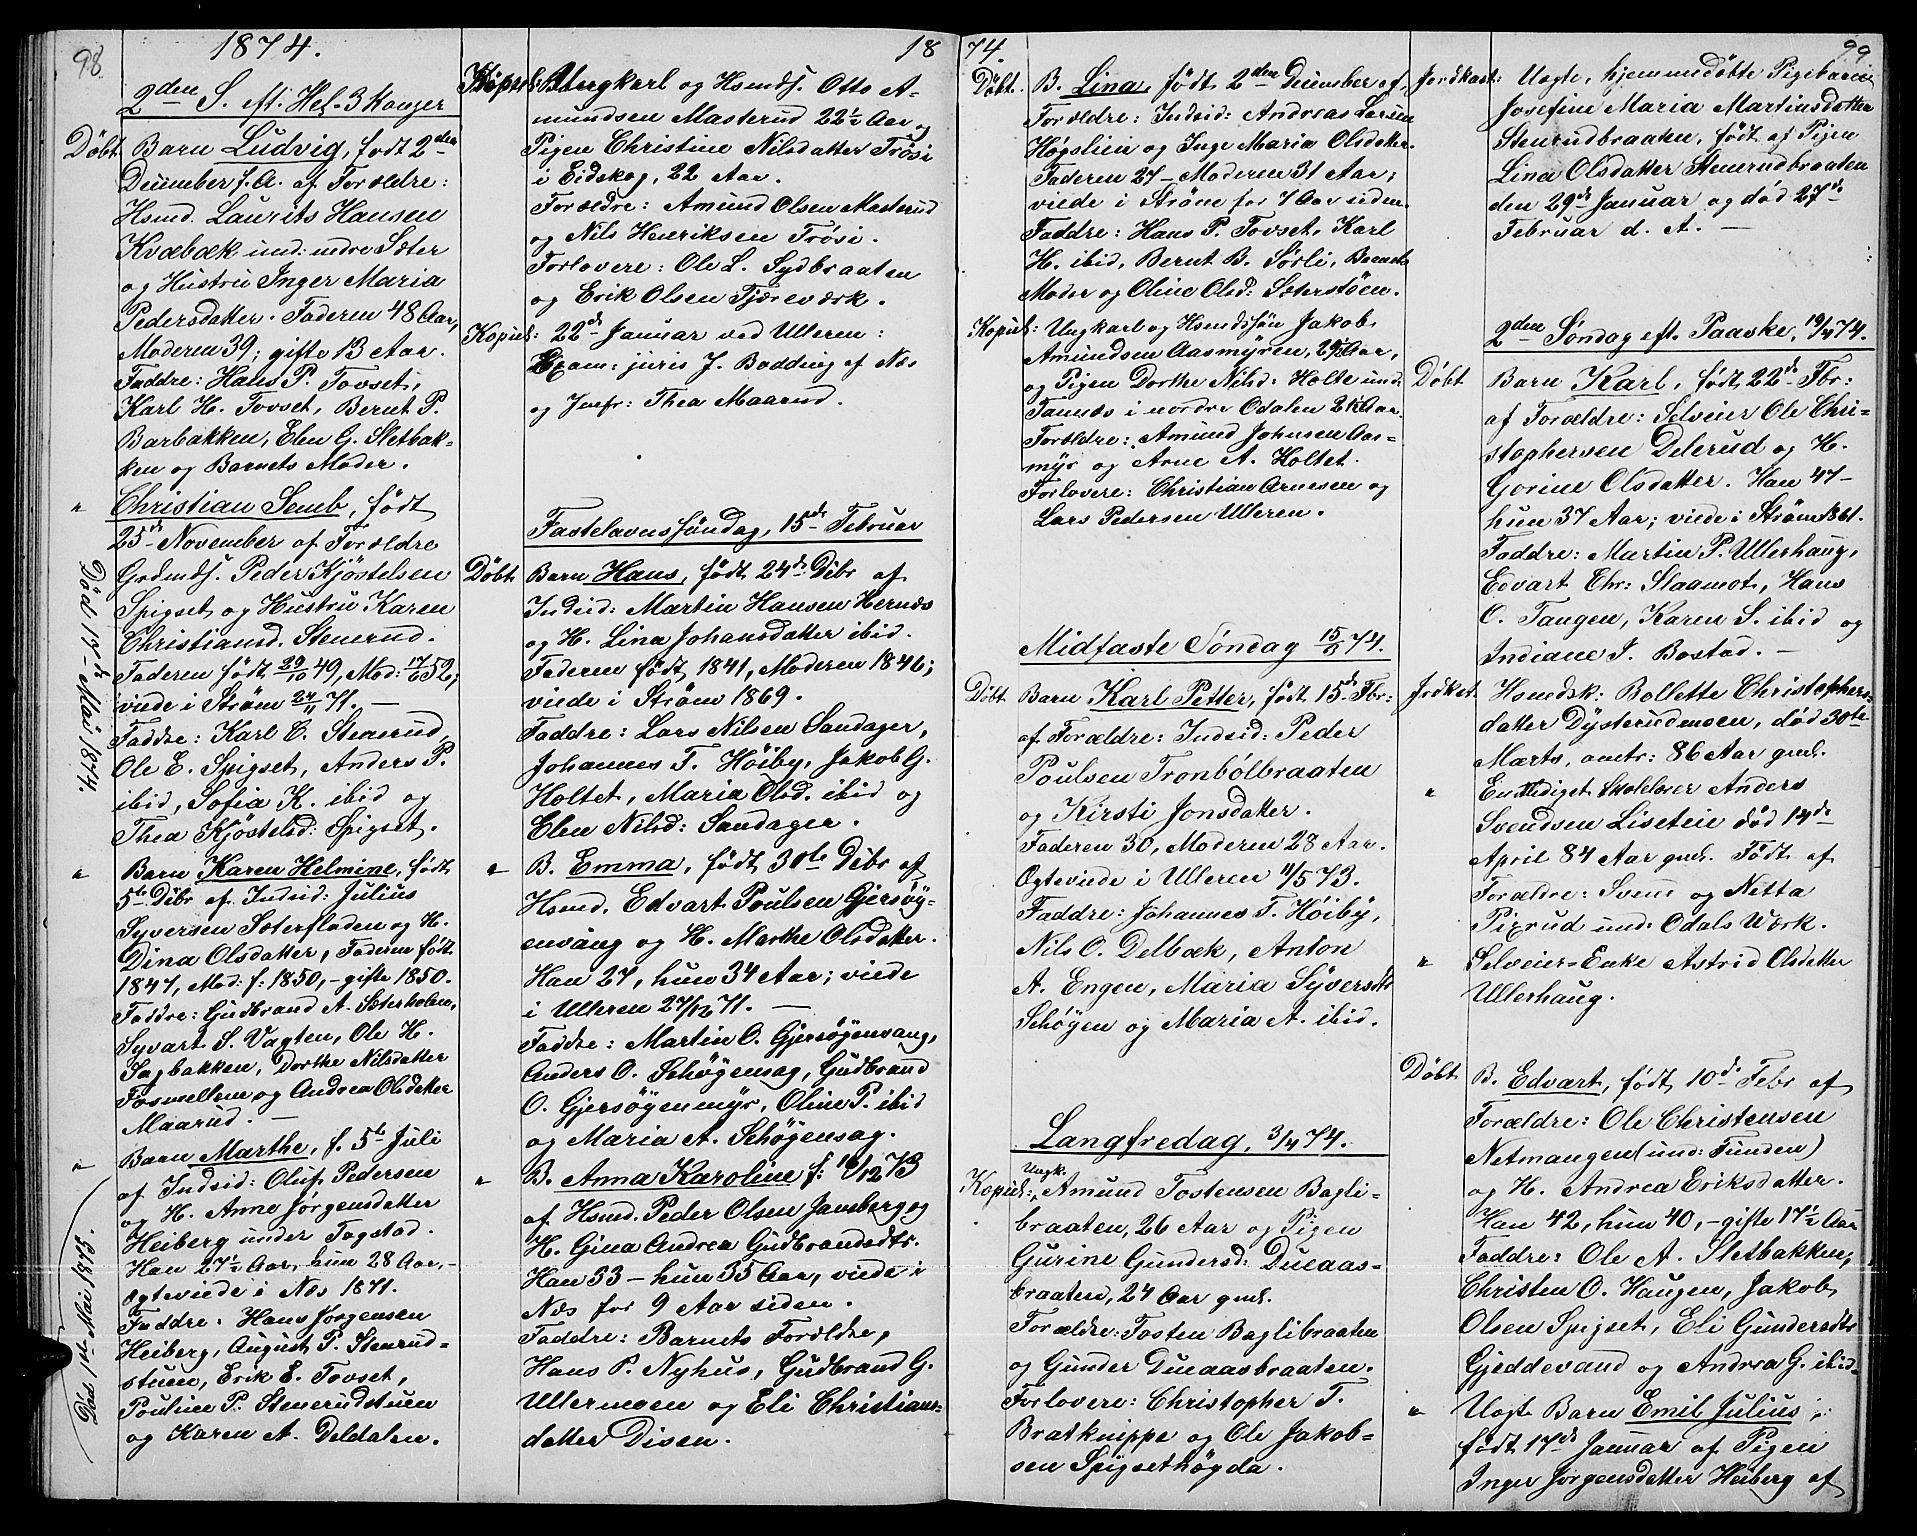 98
1874.
2den S. eft. Hel. 3 Konger
Døbt. Barn Ludvig, født 2den
December f. A. af Forældre:
Hsmd. Laurits Hansen
Kvæbæk und: ndre Sæter
og Hustru Inger Maria
Pedersdatter. Faderen 48 Aar,
Moderen 39; gifte 13 Aar.
Faddre: Hans P. Tovset,
Karl H. Tovset, Bernt P.
Barbakken, Elen G. Sletbak-
ken og Barnets Moder.
" Christian Semb, født
25de November af Forældre
Grdmds. Peder Kjøstelsen
Spigset og Hustru Karen
Christiansd. Stenerud.
Faderen født 29/10 49, Mod: 17/6 52,
viede i Strøm 24/11 71. —
Faddre: Karl C. Stenerud,
Ole E. Spigset, Anders P.
ibid, Sofia K. ibid og
Thea Kjøstelsd: Spigset.
Død 17de Mai 1874.
" Barn Karen Helmine, født
5te Dcbr af Indsid: Julius
Syversen Sæterfladen og H.
Dina Olsdatter, Faderen født
1847, Mod: f: 1850, - gifte 1850.
Faddre: Gudbrand A. Sæterholen,
Syvart S. Vagten, Ole H.
Sagbakken, Dorthe Nilsdatter
Fosmellem og Andrea Olsdatter
Maarud. —
" Barn Marthe, f. 5te Juli
af Indsid: Oluf Pedersen
og H. Anne Jørgensdatter
Heiberg under Fagstad.
Han 27½ Aar, hun 28 Aar, -
ægteviede i Næs 1871.
Faddre: Hans Jørgensen
Heiberg, August P. Stenrud-
stuen, Erik E. Tovset,
Pouline P. Stenerudstuen
og Karen A. Deldalen.
18
Kopul: Ungkarl og Hsmds. Otto A-
mundsen Masterud 22½ Aar og
Pigen Christine Nilsdatter Trøsi
i Eidskog, 22 Aar.
Forældre: Amund Olsen Masterud
og Nils Henriksen Trøsi.
Forlovere: Ole L. Sydbraaten
og Erik Olsen Tjæreværk.
Kopul: 22de Januar ved Ulleren:
Exam: juris J. Bodding af Næs
og Jmfr: Thea Maarud.
Fastelavnssøndag, 15nde Februar
Døbt Barn Hans, født 24de Dcbr af
Indsid: Martin Hansen Hernæs
og H. Lina Johansdatter ibid.
Faderen født 1841, Moderen 1846;
viede i Strøm 1869.
Faddre: Lars Nilsen Sandager,
Johannes T. Høiby, Jakob G.
Holtet, Maria Olsd. ibid og
Elen Nilsd: Sandager.
" B. Emma, født 30te Dcbr af
Hsmd. Edvart Poulsen Gjersøy-
envang og H. Marthe Olsdatter.
Han 27, hun 34 Aar; viede
i Ulleren 27/12 71. —
Faddre: Martin O. Gjersøyenvang,
Anders O. Schøgensag, Gudbrand
O. Gjersøyenmyr, Oline P. ibid
og Maria A. Schøgensag.
" B. Anna Karoline f: 10/12 73
af Hsmd. Peder Olsen Jansberg og
H. Gina Andrea Gudbrandsdtr.
Han 33 - hun 35 Aar, viede i
Næs for 9 Aar siden.
Faddre: Barnets Forældre,
Hans P. Nyhus, Gudbrand G.
Ullernmoen og Eli Christians-
datter Disen.
74.
Døbt. B. Lina, født 2den December af
Forældre: Indsid: Andreas Larsen
Høgslien og Inge Maria Olsdatter.
Faderen 27 - Moderen 31 Aar;
viede i Strøm for 7 Aar siden.
Faddre: Hans P. Tovset, Karl
H. ibid, Bernt B. Sørli, Barnets
Moder og Oline Olsd: Sæterstøen.
Kopul: Ungkarl og Hsmdssøn Jakob
Amundsen Aasmyren, 29½ Aar,
og Pigen Dorthe Nilsd: Holte und:
Tannæs i nordre Odalen 21½ Aar.
Forældre: Amund Johnsen Aas-
myr og Arne A. Holtet.
Forlovere: Christian Arnesen og
Lars Pedersen Ulleren.
Midfaste Søndag 15/3 74.
Døbt Barn Karl Petter, født 15de Fbr:
af Forældre: Indsid: Peder
Poulsen Tronbølbraaten
og Kirsti Jonsdatter.
Faderen 30, Moderen 28 Aar.
Ægteviede i Ulleren 11/5 73.
Faddre: Johannes T. Høiby,
Nils O. Delbæk, Anton
A. Engen, Maria Syversdtr
Schøgen og Maria A. ibid.
Langfredag, 3/4 74.
Kopul: Ungk. Amund Tostensen Bagli-
braaten, 26 Aar og Pigen
Gurine Gundersd: Dueaas-
braaten, 24 Aar gml.
Forældre: Tosten Baglibraaten
og Gunder Dueaasbraaten.
Forlovere: Christopher T.
Bratknippe og Ole Jakob-
sen Spigsethøgda.
99
Jordkast: Uægte, hjemmedøbte Pigebarn
Josefine Maria Martinsdatter
Stenrudbraaten, født af Pigen
Lina Olsdatter Stenerudbraaten
den 29de Januar og død 27de
Februar d. A. —
2den Søndag eft. Paaske, 19/4 74.
Døbt Barn Karl, født 22de Fbr:
af Forældre: Selveier Ole Chri-
stophersen Delerud og H.
Gorine Olsdatter. Han 47 -
hun 37 Aar; viede i Strøm 1861.
Faddre: Martin P. Ullerhaug,
Edvart Chr: Slaamot, Hans
O. Tangen, Karen S. ibid og
Indiane J. Bostad. —
Jrdkast. Hsmdsk: Bollette Christophers-
datter Dysterudmoen, død 30te
Marts, omtr: 86 Aar gml.
" Entlediget Skolelærer Anders
Svendsen Liseteie død 14de
April 84 Aar gml. Født af
Forældre: Svend og Netta
Pixrud und: Odals Værk.
" Selveier-Enke Astrid Olsdatter
Ullerhaug.
Døbt B. Edvart, født 10de Febr af
Forældre: Ole Christensen
Netmangen (und: Funden)
og H. Andrea Eriksdatter.
Han 42, hun 40, - gifte 17½ Aar
Faddre: Ole A. Sletbakken,
Christen O. Haugen, Jakob
Olsen Spigset, Eli Gundersdtr
Gjeddevand og Andrea G. ibid.
" Uægte Barn Emil Julius,
født 17de Januar af Pigen
Inger Jørgensdatter Heiberg af